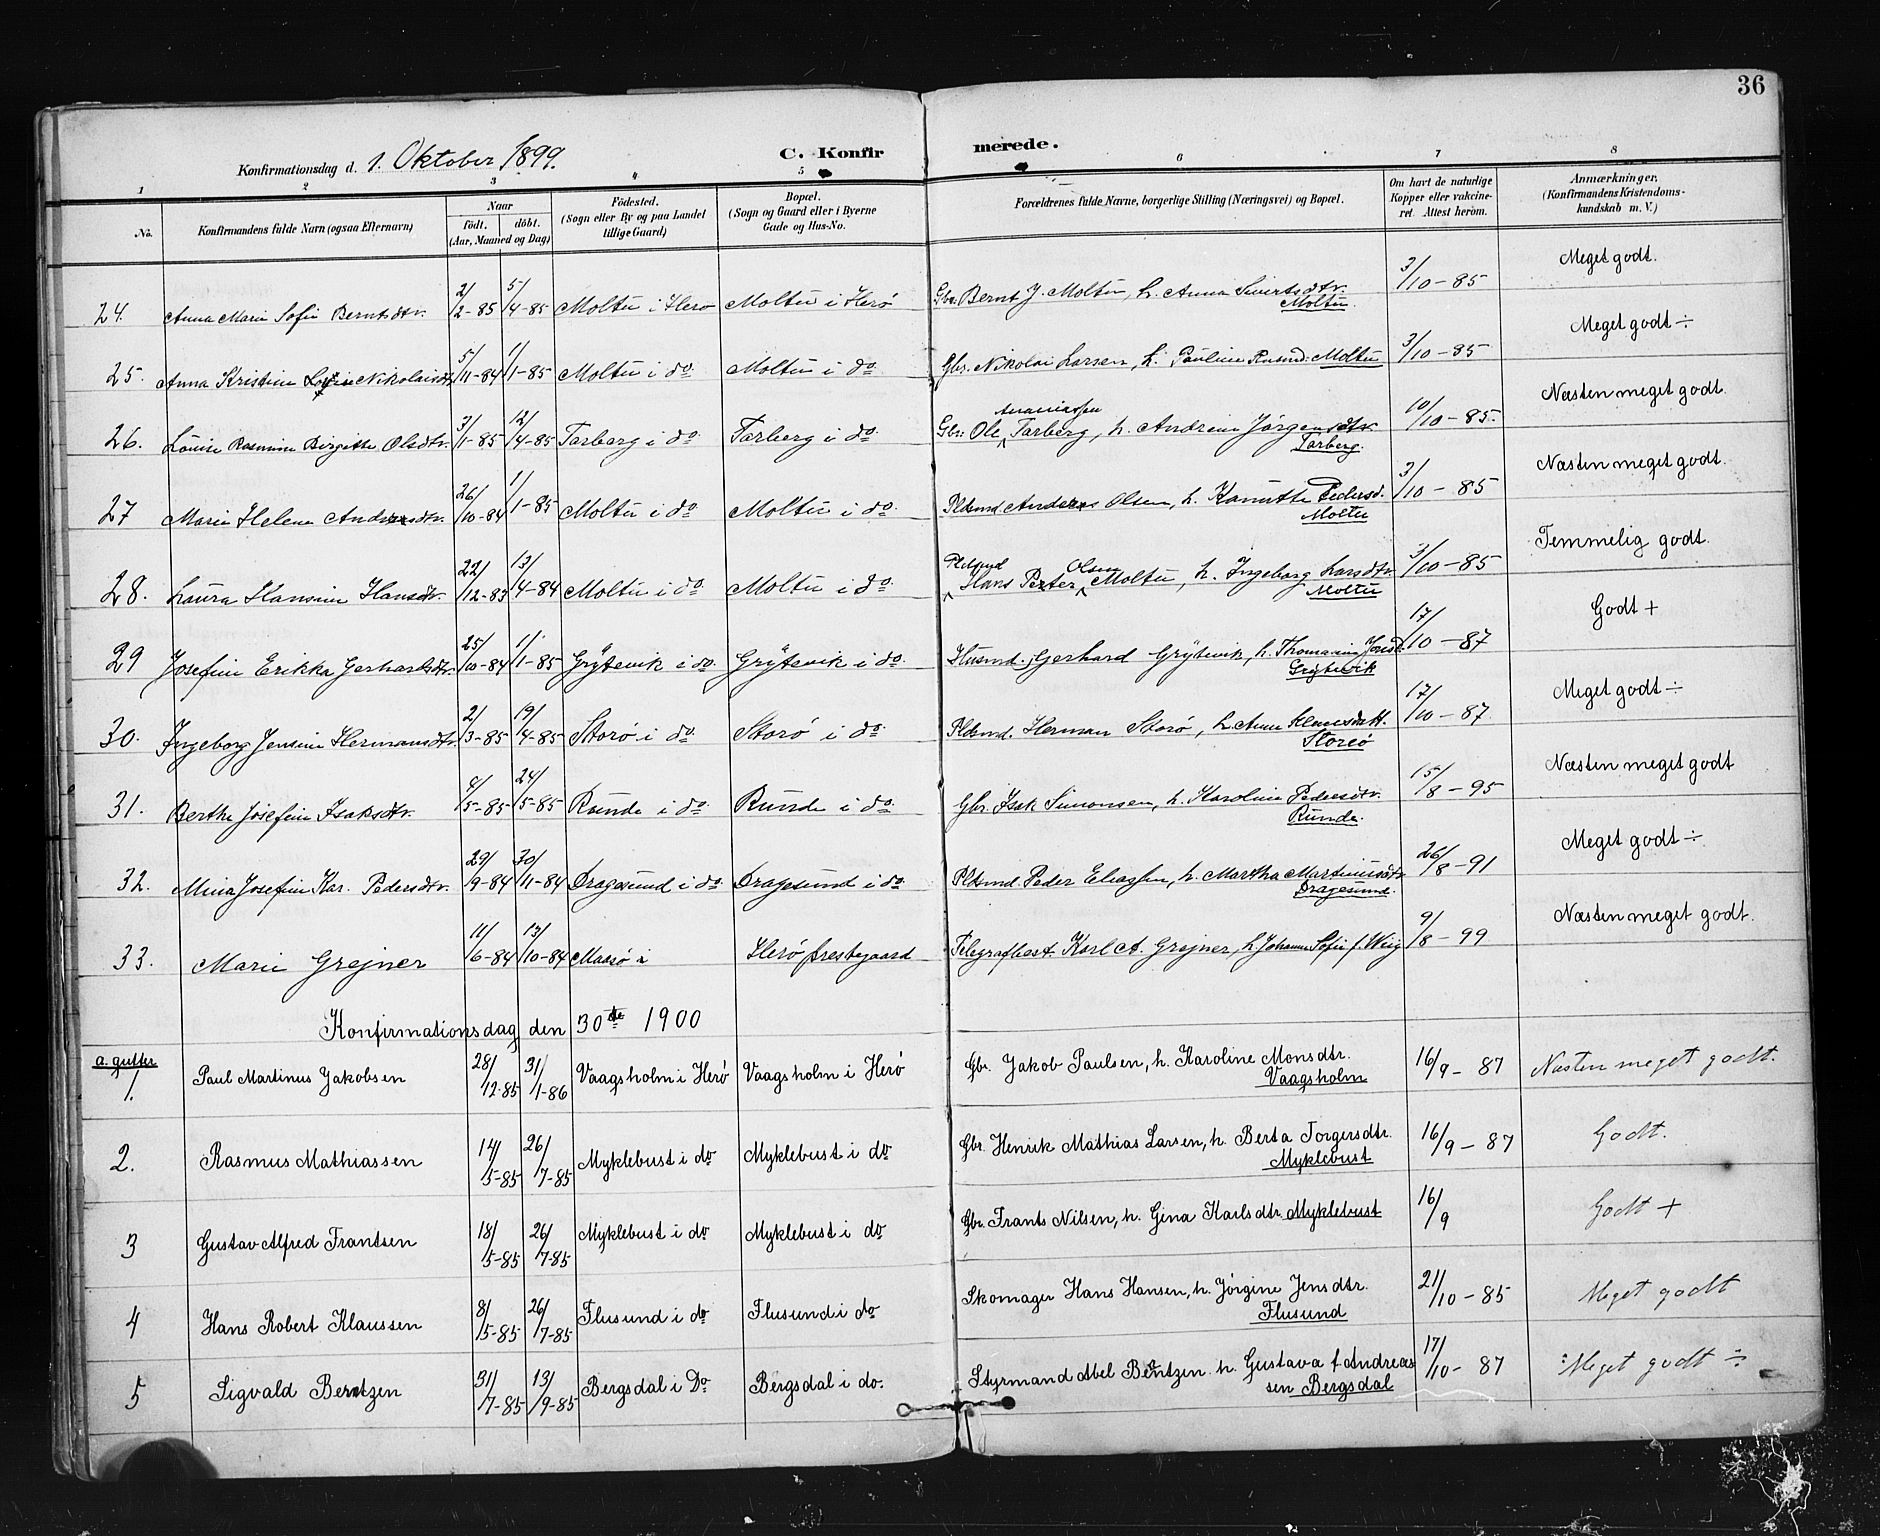 36
Konfirmationsdag d. 1. Oktober 1899. C. Konfirmerede.
1 2 3 4 5 6 7 8
No. Konfirmandens fulde Navn (ogsaa Efternavn) Naar født. døbt. (Aar, Maaned og Dag) Fødested. (Sogn eller By og paa Landet tillige Gaard) Bopæl. (Sogn og Gaard eller i Byerne Gade og Hus-No. Forældrenes fulde Navne, borgerlige Stilling (Næringsvei) og Bopæl. Om havt de naturlige Kopper eller vakcineret. Attest herom. Anmærkninger. (Konfirmandens Kristendomskundskab m. V.)
24. Anna Marie Sofie Berntsdtr. 2/2-85 5/4-85 Moltu i Herø Moltu i Herø Gbr. Bernt J. Moltu, h. Anna Sivertsdtr. Moltu 3/10-85 Meget godt.
25. Anna Kristine Nikolaisdtr 5/11-84 1/1-85 Moltu i do Moltu i do Gbr. Nikolai Larsen, h. Pauline Rasmd. Moltu 3/10-85 Meget godt ÷
26. Louise Rasmine Birgitte Olsdtr. 3/1-85 12/4-85 Tarberg i do. Tarberg i do. Gbr. Ole Ananiassen Tarberg, h. Andrine Jørgensdtr. Tarberg. 10/10-85. Næsten meget godt.
27 Marie Helene Andersdtr. 26/10-84 1/1-85 Moltu i do Moltu i do. Pldsmd. Anders Olsen, h. Kanutte Pedersd. Moltu 3/10-85 Næsten meget godt.
28. Laura Hansine Hansdtr. 22/12-83 13/4-84 Moltu i do. Moltu i do. Pldsmd Hans Petter Olsen Moltu, h. Ingeborg Larsdtr. Moltu 3/10-85 Temmelig godt.
29 Josefine Erikka Gerhardsdtr. 25/10-84 1/1-85 Grytevik i do. Grytevik i do. Husmd. Gerhard Grytevik, h. Thomasine Grytevik 17/10-87 Godt +
30. Ingeborg Jensine Hermansdtr. 2/3-85 19/4-85 Storø i do Storø i do. Pldsmd. Herman Storø, h. Anne Storeø 17/10-87. Meget godt ÷
31. Berthe Josefine Isaksdtr. 4/5-85 24/5-85 Runde i do. Runde i do. Gbr. Isak Simonsen, h. Karoline Pedersdtr. Runde. 15/8-95 Næsten meget godt
32. Mina Josefine Kar. Pedersdtr. 29/9-84 30/11-84 Dragesund i do Dragesund i do Pldsmd. Peder Eliassen, h. Martha Martinusdtr. Dragesund. 26/8-91 Meget godt ÷
33. Marie Grejner 11/6-84 13/10-84 Maasø i Herø Prestegaard Telegrafbest. Karl A. Grejner, h. Johanne Sofie f. Wiig 9/8-99 Næsten meget godt.
Konfirmationsdag den 30te 1900
a. gutter
1. Paul Martinus Jakobsen 28/12-85 31/1-86 Vaagsholm i Herø Vaagsholm i Herø Gbr. Jakob Paulsen, h. Karoline Monsdtr. Vaagsholm 16/9-87 Næsten meget godt.
2. Rasmus Mathiassen 14/5-85 26/7-85 Myklebust i do Myklebust i do Gbr. Henrik Mathias Larsen, h. Berta Torgersdtr. Myklebust 16/9-87 Godt.
3 Gustav Alfred Frantsen 18/5-85 26/7-85 Myklebust i do Myklebust i do Gbr. Frants Nilsen, h. Gina Karlsdtr. Myklebust 16/9 Godt +
4 Hans Robert Klaussen 8/5-85 26/7-85 Flusund i do Flusund i do Skomager Hans Hansen, h. Jørgine Jensdtr. Flusund 21/10-85 Meget godt
5 Sigvald Berntzen 31/7-85 13/9-85 Bergsdal i Do Bergsdal i do. Styrmand Abel Bentzen. h. Gustava f. Andreassen Bergsdal 17/10-87 Meget godt ÷